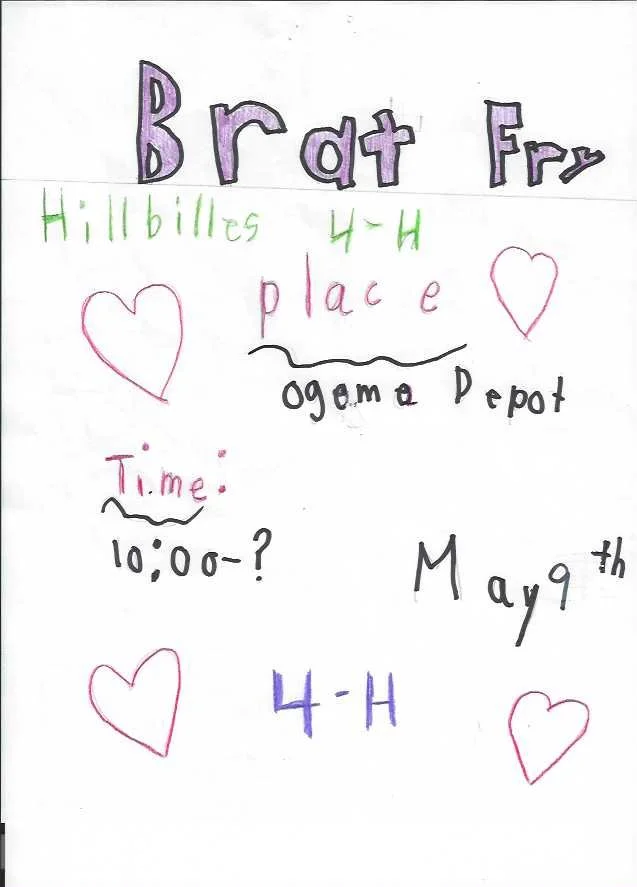 Brat Fry
Hillbilles 4-H
place
ogema Depot
Time:
10:00-?
May 9th
4-H